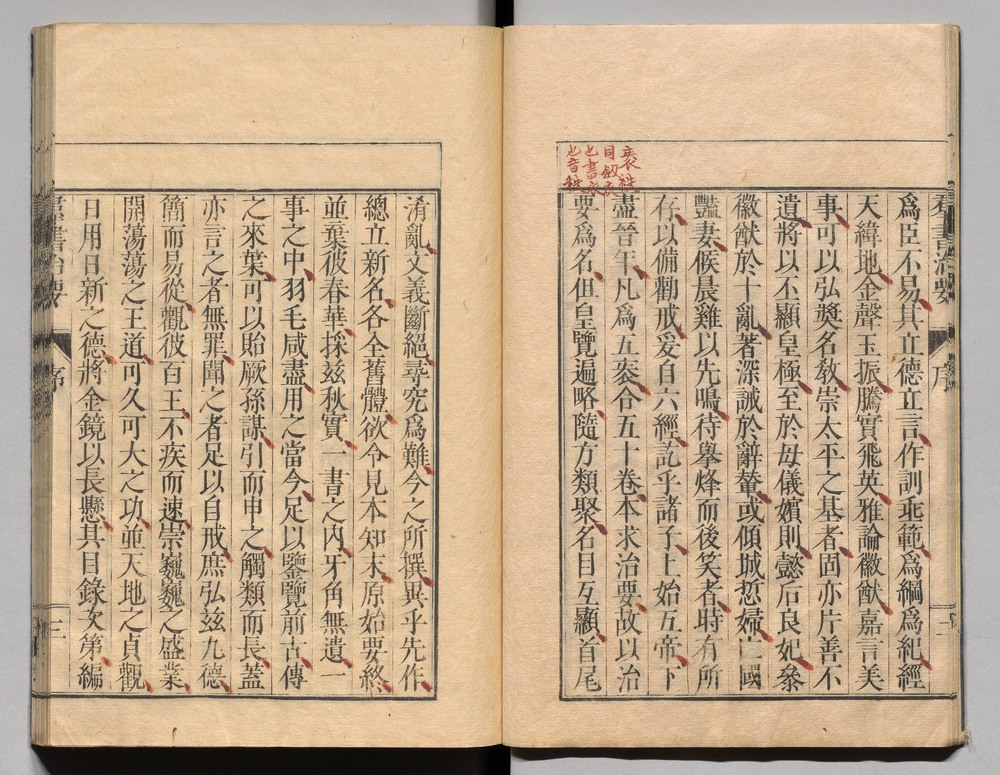 裘袟
同劔衣
也書衣
也音秩
爲臣不易其立德立言作訓垂範爲綱爲紀經
天緯地金聲玉振騰實飛英雅論徽猷嘉言美
事可以弘奬名教崇太平之基者固亦片善不
遺將以丕顯皇極至於母儀嬪則懿后良妃參
徽猷於十亂著深誡於辭輦或傾城悊婦亡國
豔妻候晨雞以先鳴待擧烽而後笑者時有所
存以備勸戒爰自六經訖乎諸子上始五帝下
盡晉年凡爲五袠合五十卷本求治要故以治
要爲名但皇覽遍略隨方類聚名目互顯首尾
淆亂文義斷絕尋究爲難今之所撰異乎先作
總立新名各全舊體欲令見本知末原始要終
並棄彼春華採茲秋實一書之內牙角無遺一
事之中羽毛咸盡用之當今足以鑒覽前古傳
之來葉可以貽厥孫謀引而申之觸類而長蓋
亦言之者無罪聞之者足以自戒庶弘茲九德
簡而易從觀彼百王不疾而速崇巍巍之盛業
開蕩蕩之王道可久可大之功並天地之貞觀
日用日新之德將金鏡以長懸其目錄次第編
羣書治要
序
三